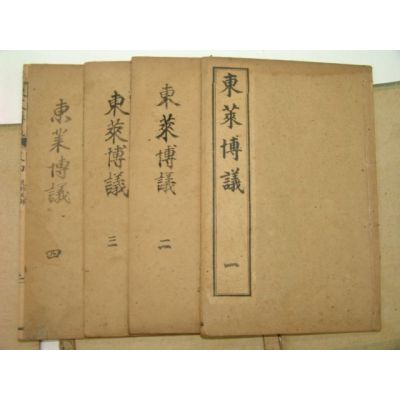 東萊博議 一
東萊博議 二
東萊博議 三
東萊博議 四